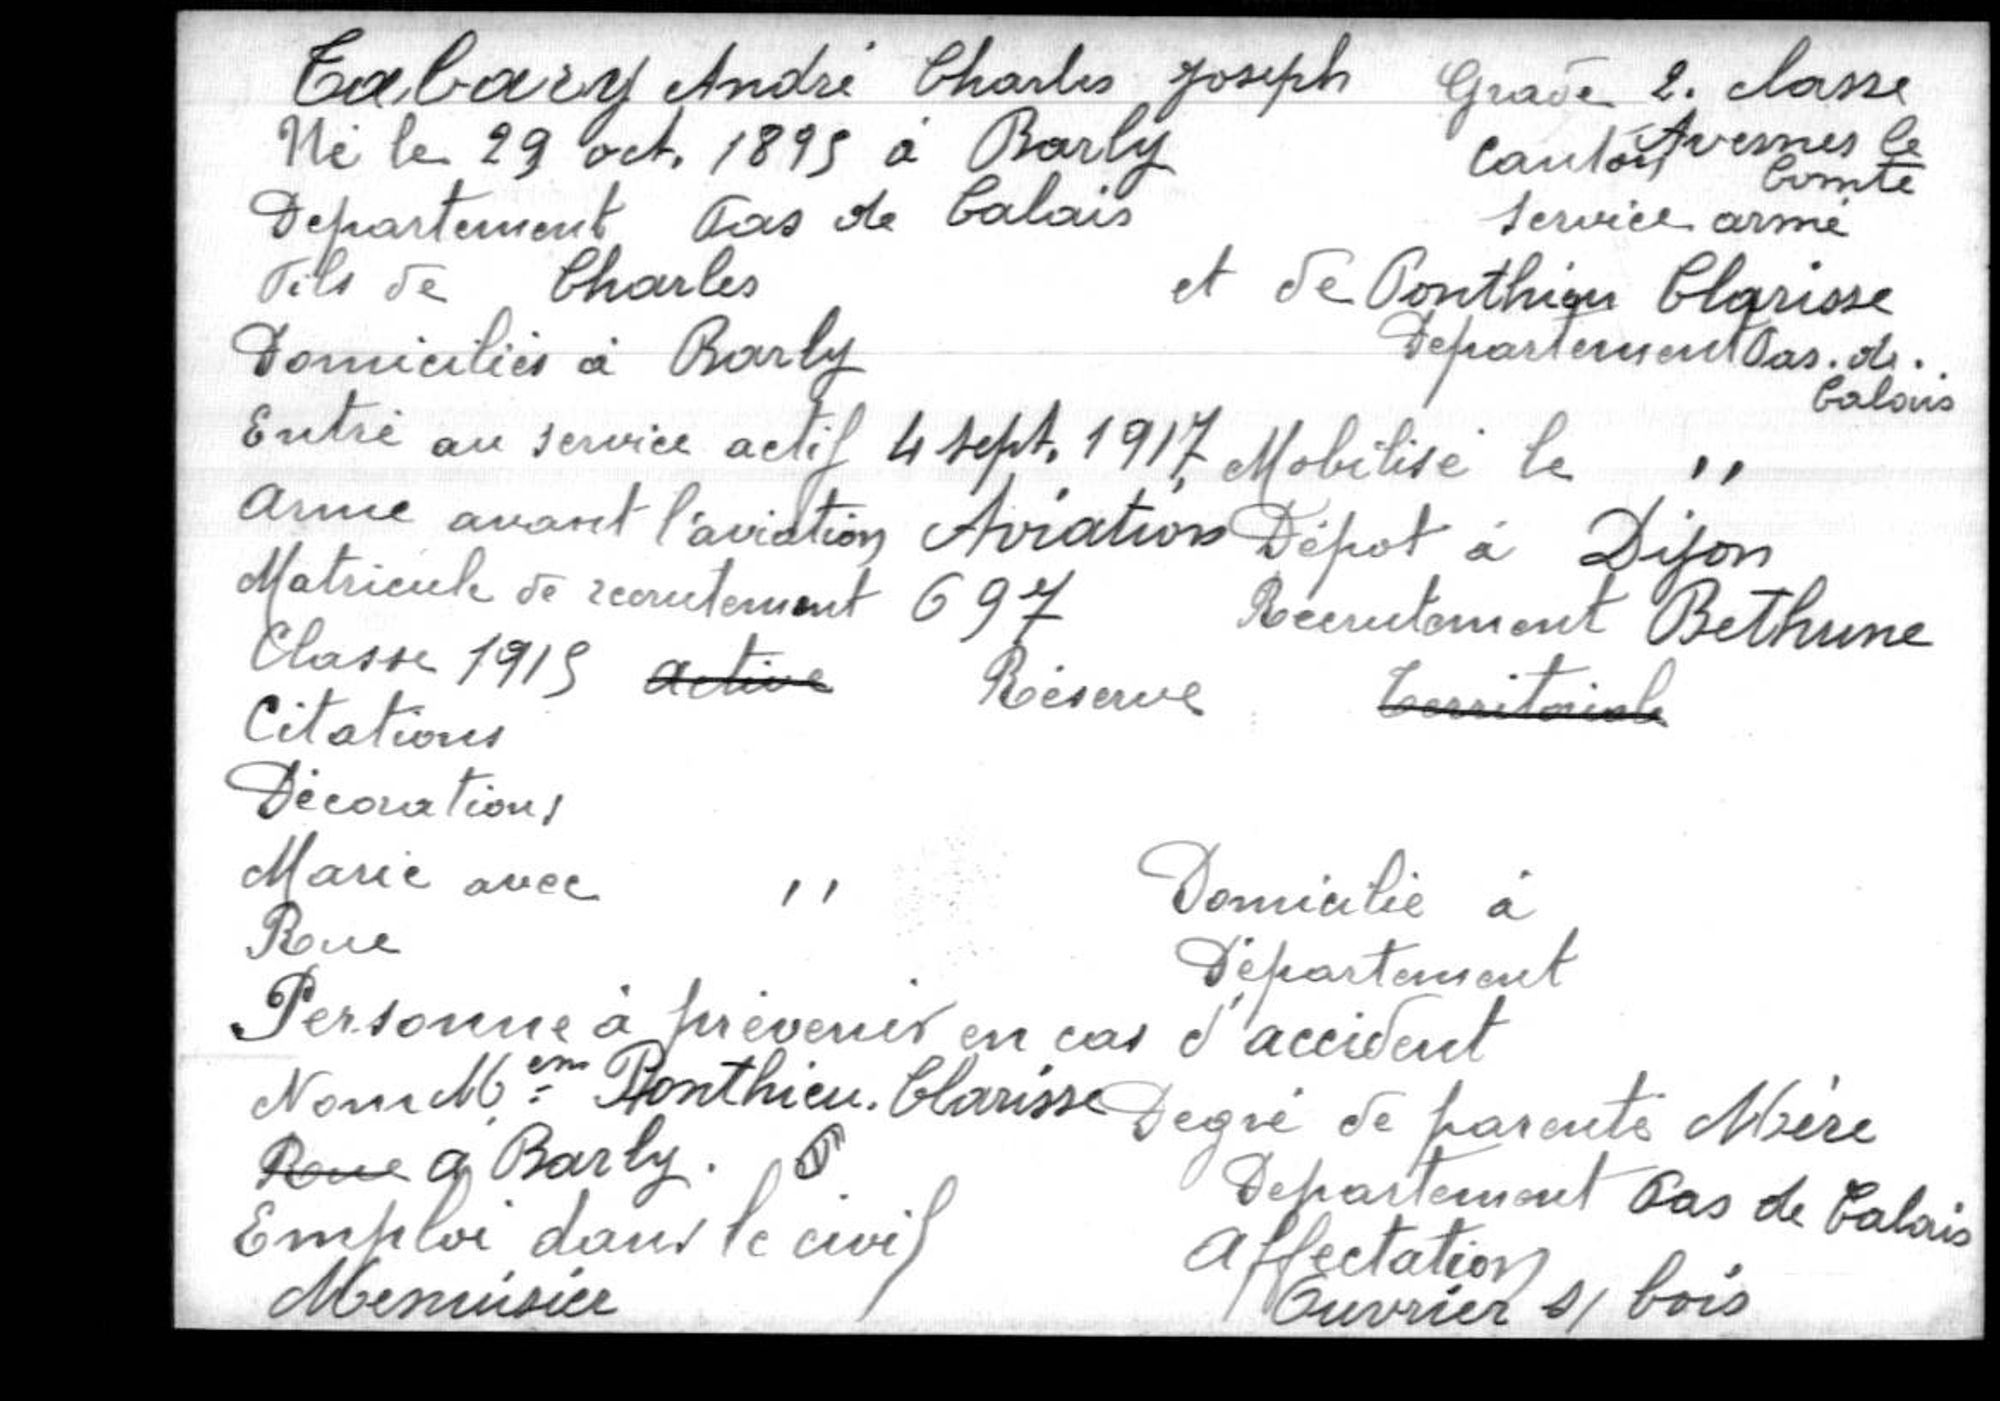 Tabary André Charles Joseph Grade 2. classe
Né le 29 oct. 1895 à Barly Canton Avesnes le Comte
Departement Pas de Calais Service armé
Fils de Charles et de Ponthieu Clarisse
Domiciliés à Barly Departement Pas. de. Calais
Entré au service actif 4 sept. 1917, Mobilisé le "
Arme avant l'aviation Aviation Dépot à Dijon
Matricule de recrutement 697 Recrutement Bethune
Classe 1915 active Réserve Territoriale
Citations
Décorations
Marié avec " Domicilié à
Rue Département
Personne à prévenir en cas d'accident
Nom Mem Ponthieu. Clarisse Degré de parenté Mère
Rue à Barly. Departement Pas de Calais
Emploi dans le civil Affectation
Menuisier Ouvrier s/ bois